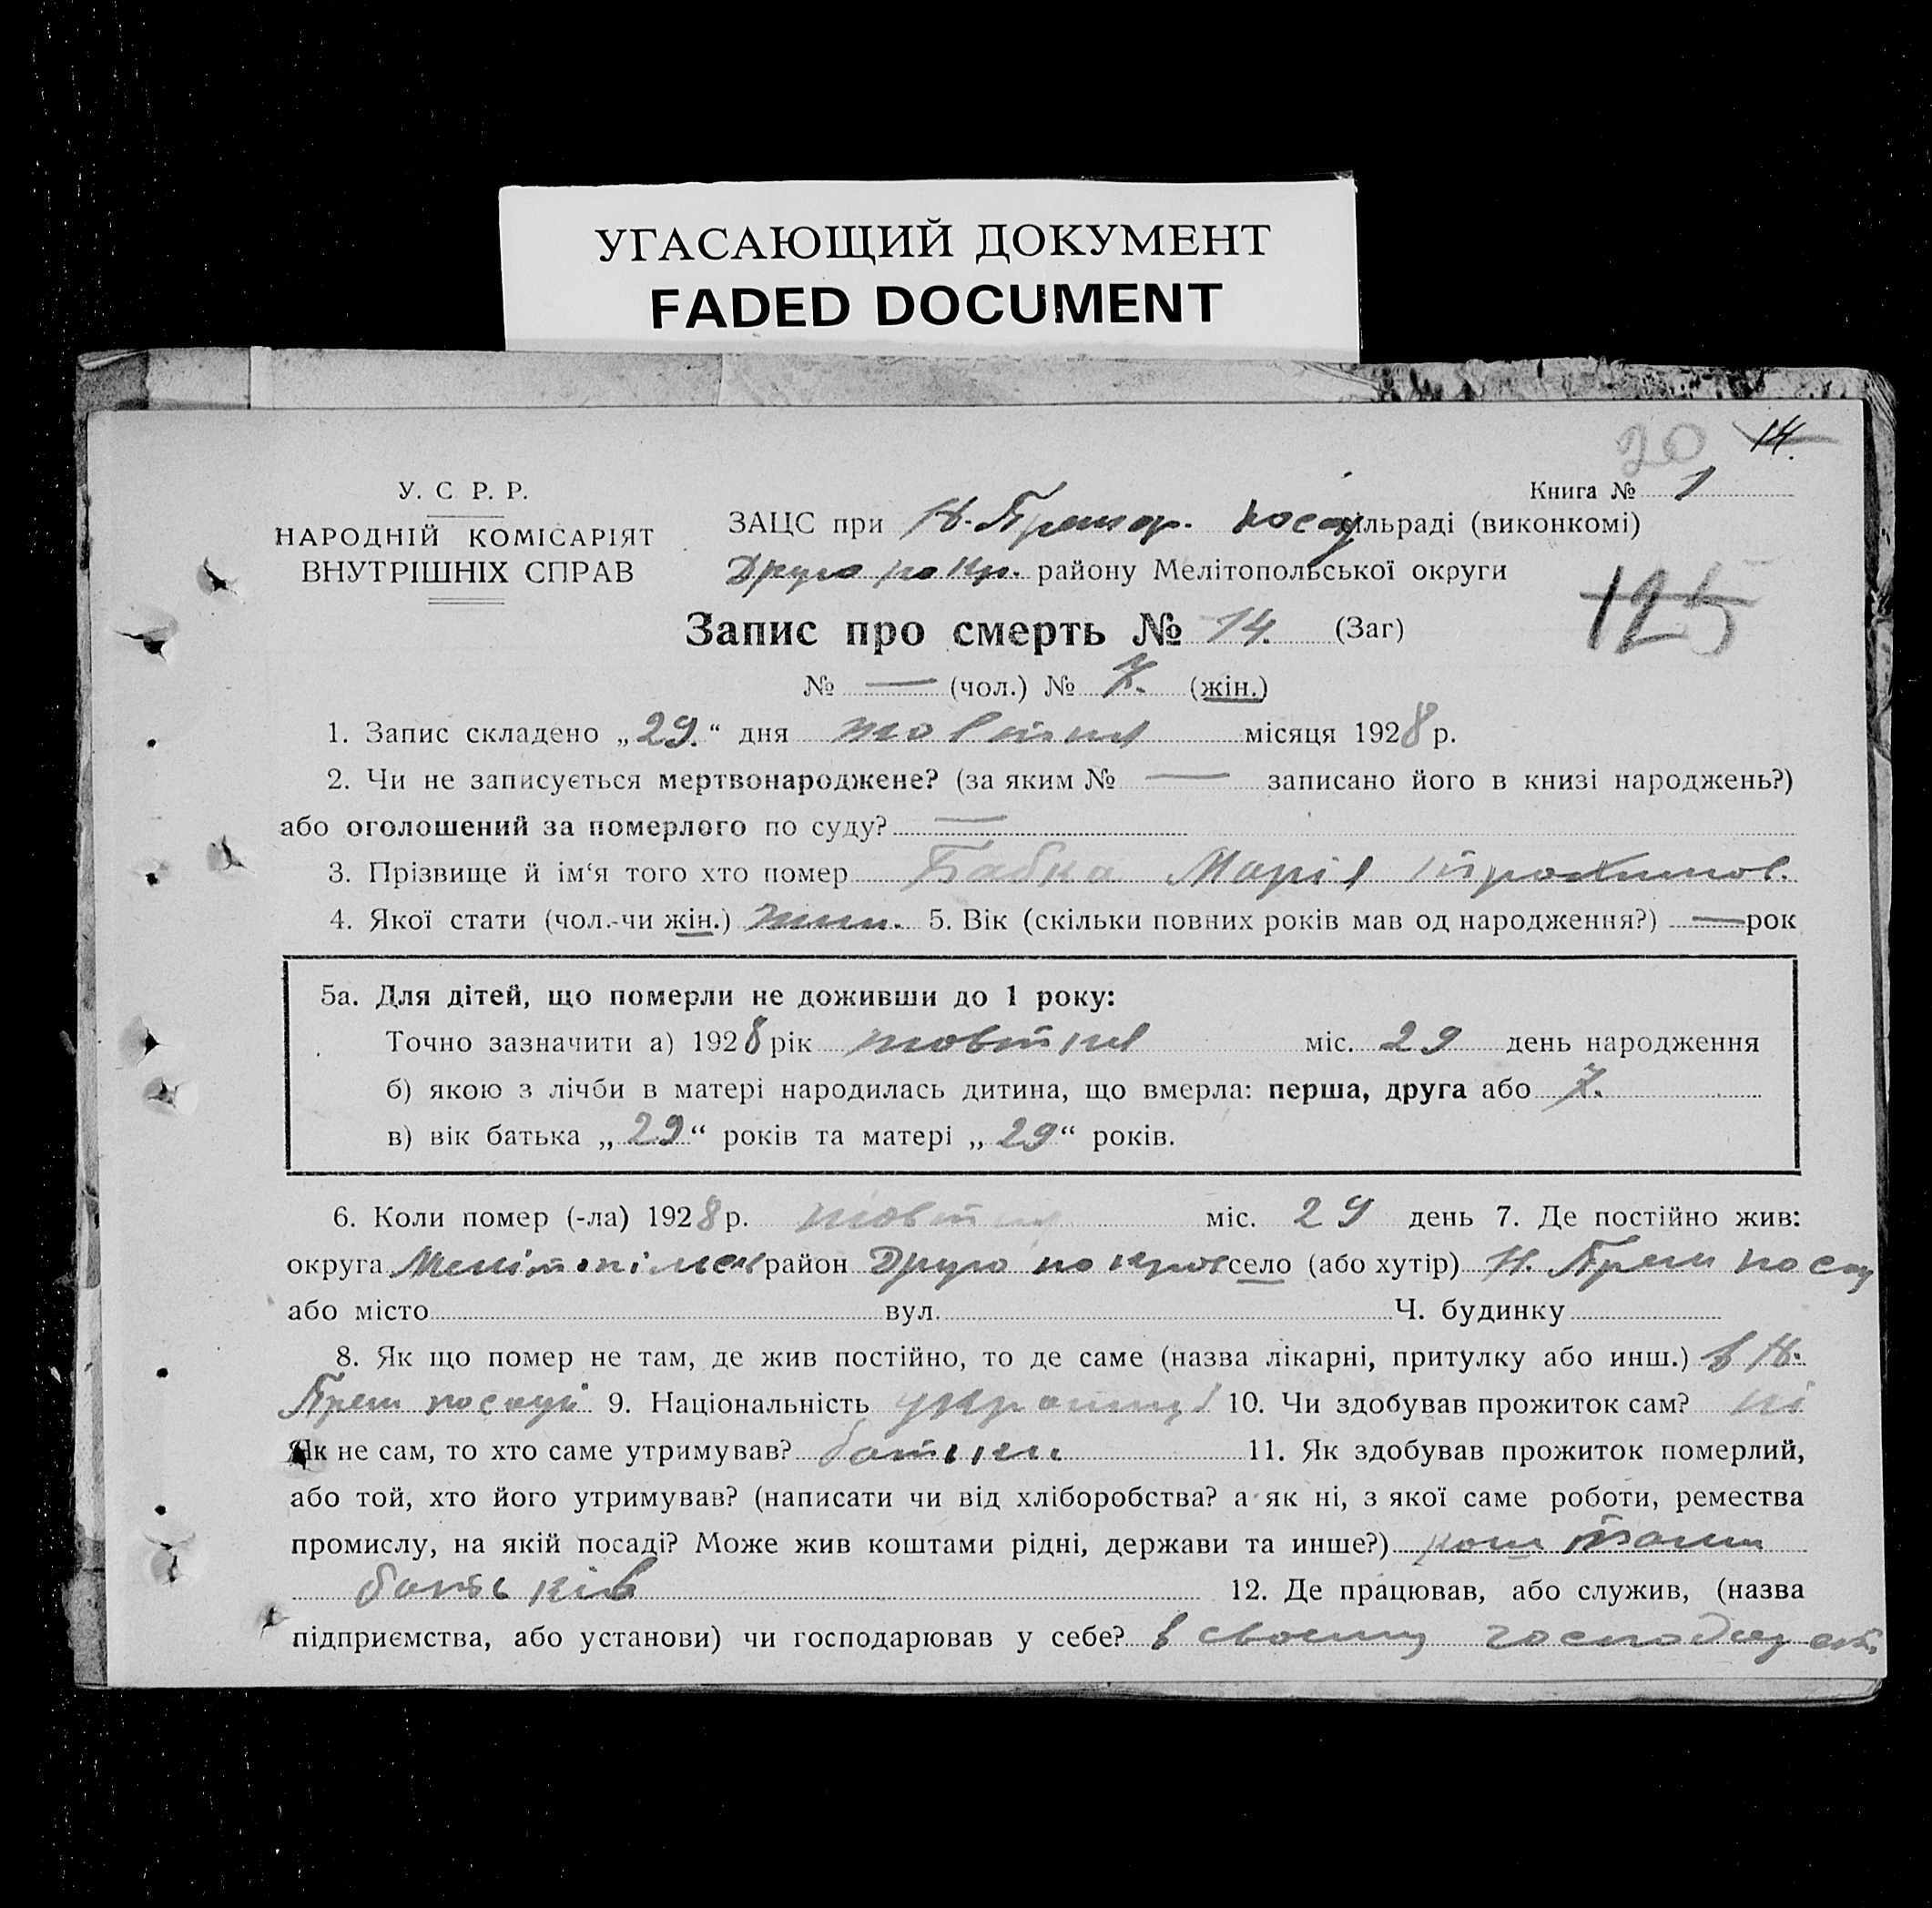 УГАСАЮЩИЙ ДОКУМЕНТ
FADED DOCUMENT
20 14.
У. С Р. Р.
Книга № 1
НАРОДНІЙ КОМІСАРІЯТ
ВНУТРІШНІХ СПРАВ
ЗАЦС при Н. посад сільраді (виконкомі)
району Мелітопольської округи
125
Запис про смерть № 14. (Заг)
№ — (чол.) № 7. (жін.)
1. Запис складено „29.“ дня жовтня місяця 1928 р.
2. Чи не записується мертвонароджене? (за яким № — записано його в книзі народжень?)
або оголошений за померлого по суду? —
3. Прізвище й ім‘я того хто помер Бабка Марія
4. Якої стати (чол.-чи жін.) жін. 5. Вік (скільки повних років мав од народження?) — рок
5а. Для дітей, що померли не доживши до 1 року:
Точно зазначити а) 1928 рік жовтня міс. 29 день народження
б) якою з лічби в матері народилась дитина, що вмерла: перша, друга або 7.
в) вік батька „29“ років та матері „29“ років.
6. Коли помер (-ла) 1928 р. жовтня міс. 29 день 7. Де постійно жив:
округа Мелітопільск район Другопокров село (або хутір) Н. посад
або місто вул. Ч. будинку
8. Як що помер не там, де жив постійно, то де саме (назва лікарні, притулку або инш.) в Н.
посаді 9. Національність 10. Чи здобував прожиток сам? ні
Як не сам, то хто саме утримував? батьки 11. Як здобував прожиток померлий,
або той, хто його утримував? (написати чи від хліборобства? а як ні, з якої саме роботи, ремества
промислу, на якій посаді? Може жив коштами рідні, держави та инше?) коштами
батьків 12. Де працював, або служив, (назва
підприємства, або установи) чи господарював у себе? в своєму